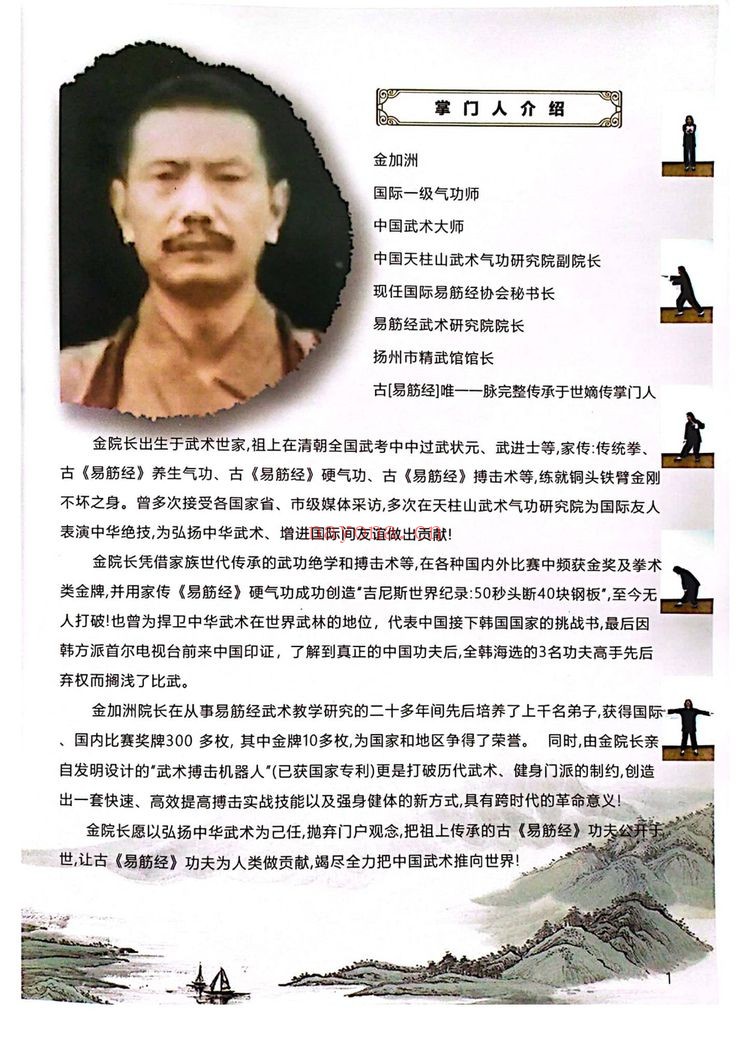 掌门人介绍
金加洲
国际一级气功师
中国武术大师
中国天柱山武术气功研究院副院长
现任国际易筋经协会秘书长
易筋经武术研究院院长
扬州市精武馆馆长
古[易筋经]唯一一脉完整传承于世嫡传掌门人
金院长出生于武术世家,祖上在清朝全国武考中中过武状元、武进士等,家传:传统拳、
古《易筋经》养生气功、古《易筋经》硬气功、古《易筋经》搏击术等,练就铜头铁臂金刚
不坏之身。曾多次接受各国家省、市级媒体采访,多次在天柱山武术气功研究院为国际友人
表演中华绝技,为弘扬中华武术、增进国际间友谊做出贡献!
金院长凭借家族世代传承的武功绝学和搏击术等,在各种国内外比赛中频获金奖及拳术
类金牌,并用家传《易筋经》硬气功成功创造"吉尼斯世界纪录:50秒头断40块钢板",至今无
人打破!也曾为捍卫中华武术在世界武林的地位，代表中国接下韩国国家的挑战书,最后因
韩方派首尔电视台前来中国印证，了解到真正的中国功夫后,全韩海选的3名功夫高手先后
弃权而搁浅了比武。
金加洲院长在从事易筋经武术教学研究的二十多年间先后培养了上千名弟子,获得国际
、国内比赛奖牌300 多枚, 其中金牌10多枚,为国家和地区争得了荣誉。 同时,由金院长亲
自发明设计的"武术搏击机器人"(已获国家专利)更是打破历代武术、健身门派的制约,创造
出一套快速、高效提高搏击实战技能以及强身健体的新方式,具有跨时代的革命意义!
金院长愿以弘扬中华武术为己任,抛弃门户观念,把祖上传承的古《易筋经》功夫公开于
世,让古《易筋经》功夫为人类做贡献,竭尽全力把中国武术推向世界!
1